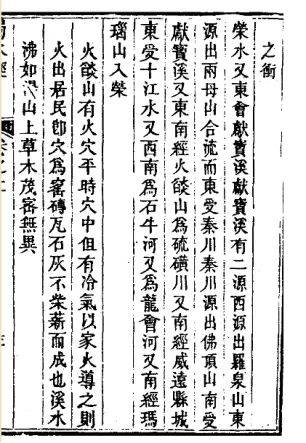 之衝
榮水又東會獻寶溪獻寶溪有二源西源出羅泉山東
源出兩母山合流而東受秦川秦川源出佛頂山南受
獻寶溪又東南經火燄山為硫磺川又南經威遠縣城
東受十江水又西南為石牛河又為龍會河又南經瑪
瑙山入榮
火燄山有火穴平時穴中但有冷氣以家火導之則
火出居民卽穴為窰磚瓦石灰不柴薪而成也溪水
沸如湯山上草木茂密無異